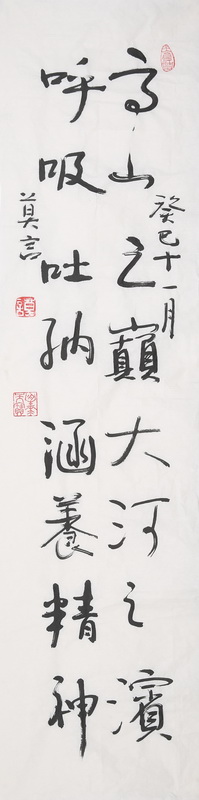 高山之巔大河之濱
呼吸吐納涵養精神
癸巳十一月
莫言